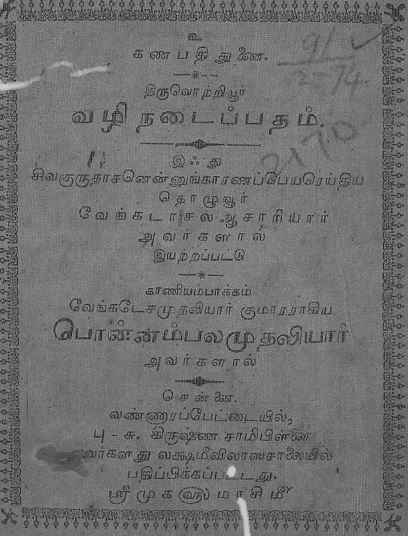 உ
கணபதி துணை.
திருவொற்றியூர்
வழி நடைப்பதம்.
இஃது
சிவகுருதாசனென்னுங்காரணப்பெயரெய்திய
தொழுவூர்
வேங்கடாசல ஆசாரியார்
அவர்களால்
இயற்றப்பட்டு
காணியம்பாக்கம்
வேங்கடேசமுதலியார் குமாரராகிய
பொன்னம்பலமுதலியார்
அவர்களால்
சென்னை.
வண்ணாரப்பேட்டையில்,
பு - சு. கிருஷ்ண சாமிபிள்ளை
அவர்களது லக்ஷ்மீவிலாஸசாலையில்
பதிப்பிக்கப்பட்டது.
ஸ்ரீமுகஹு மாசிமீ
2170